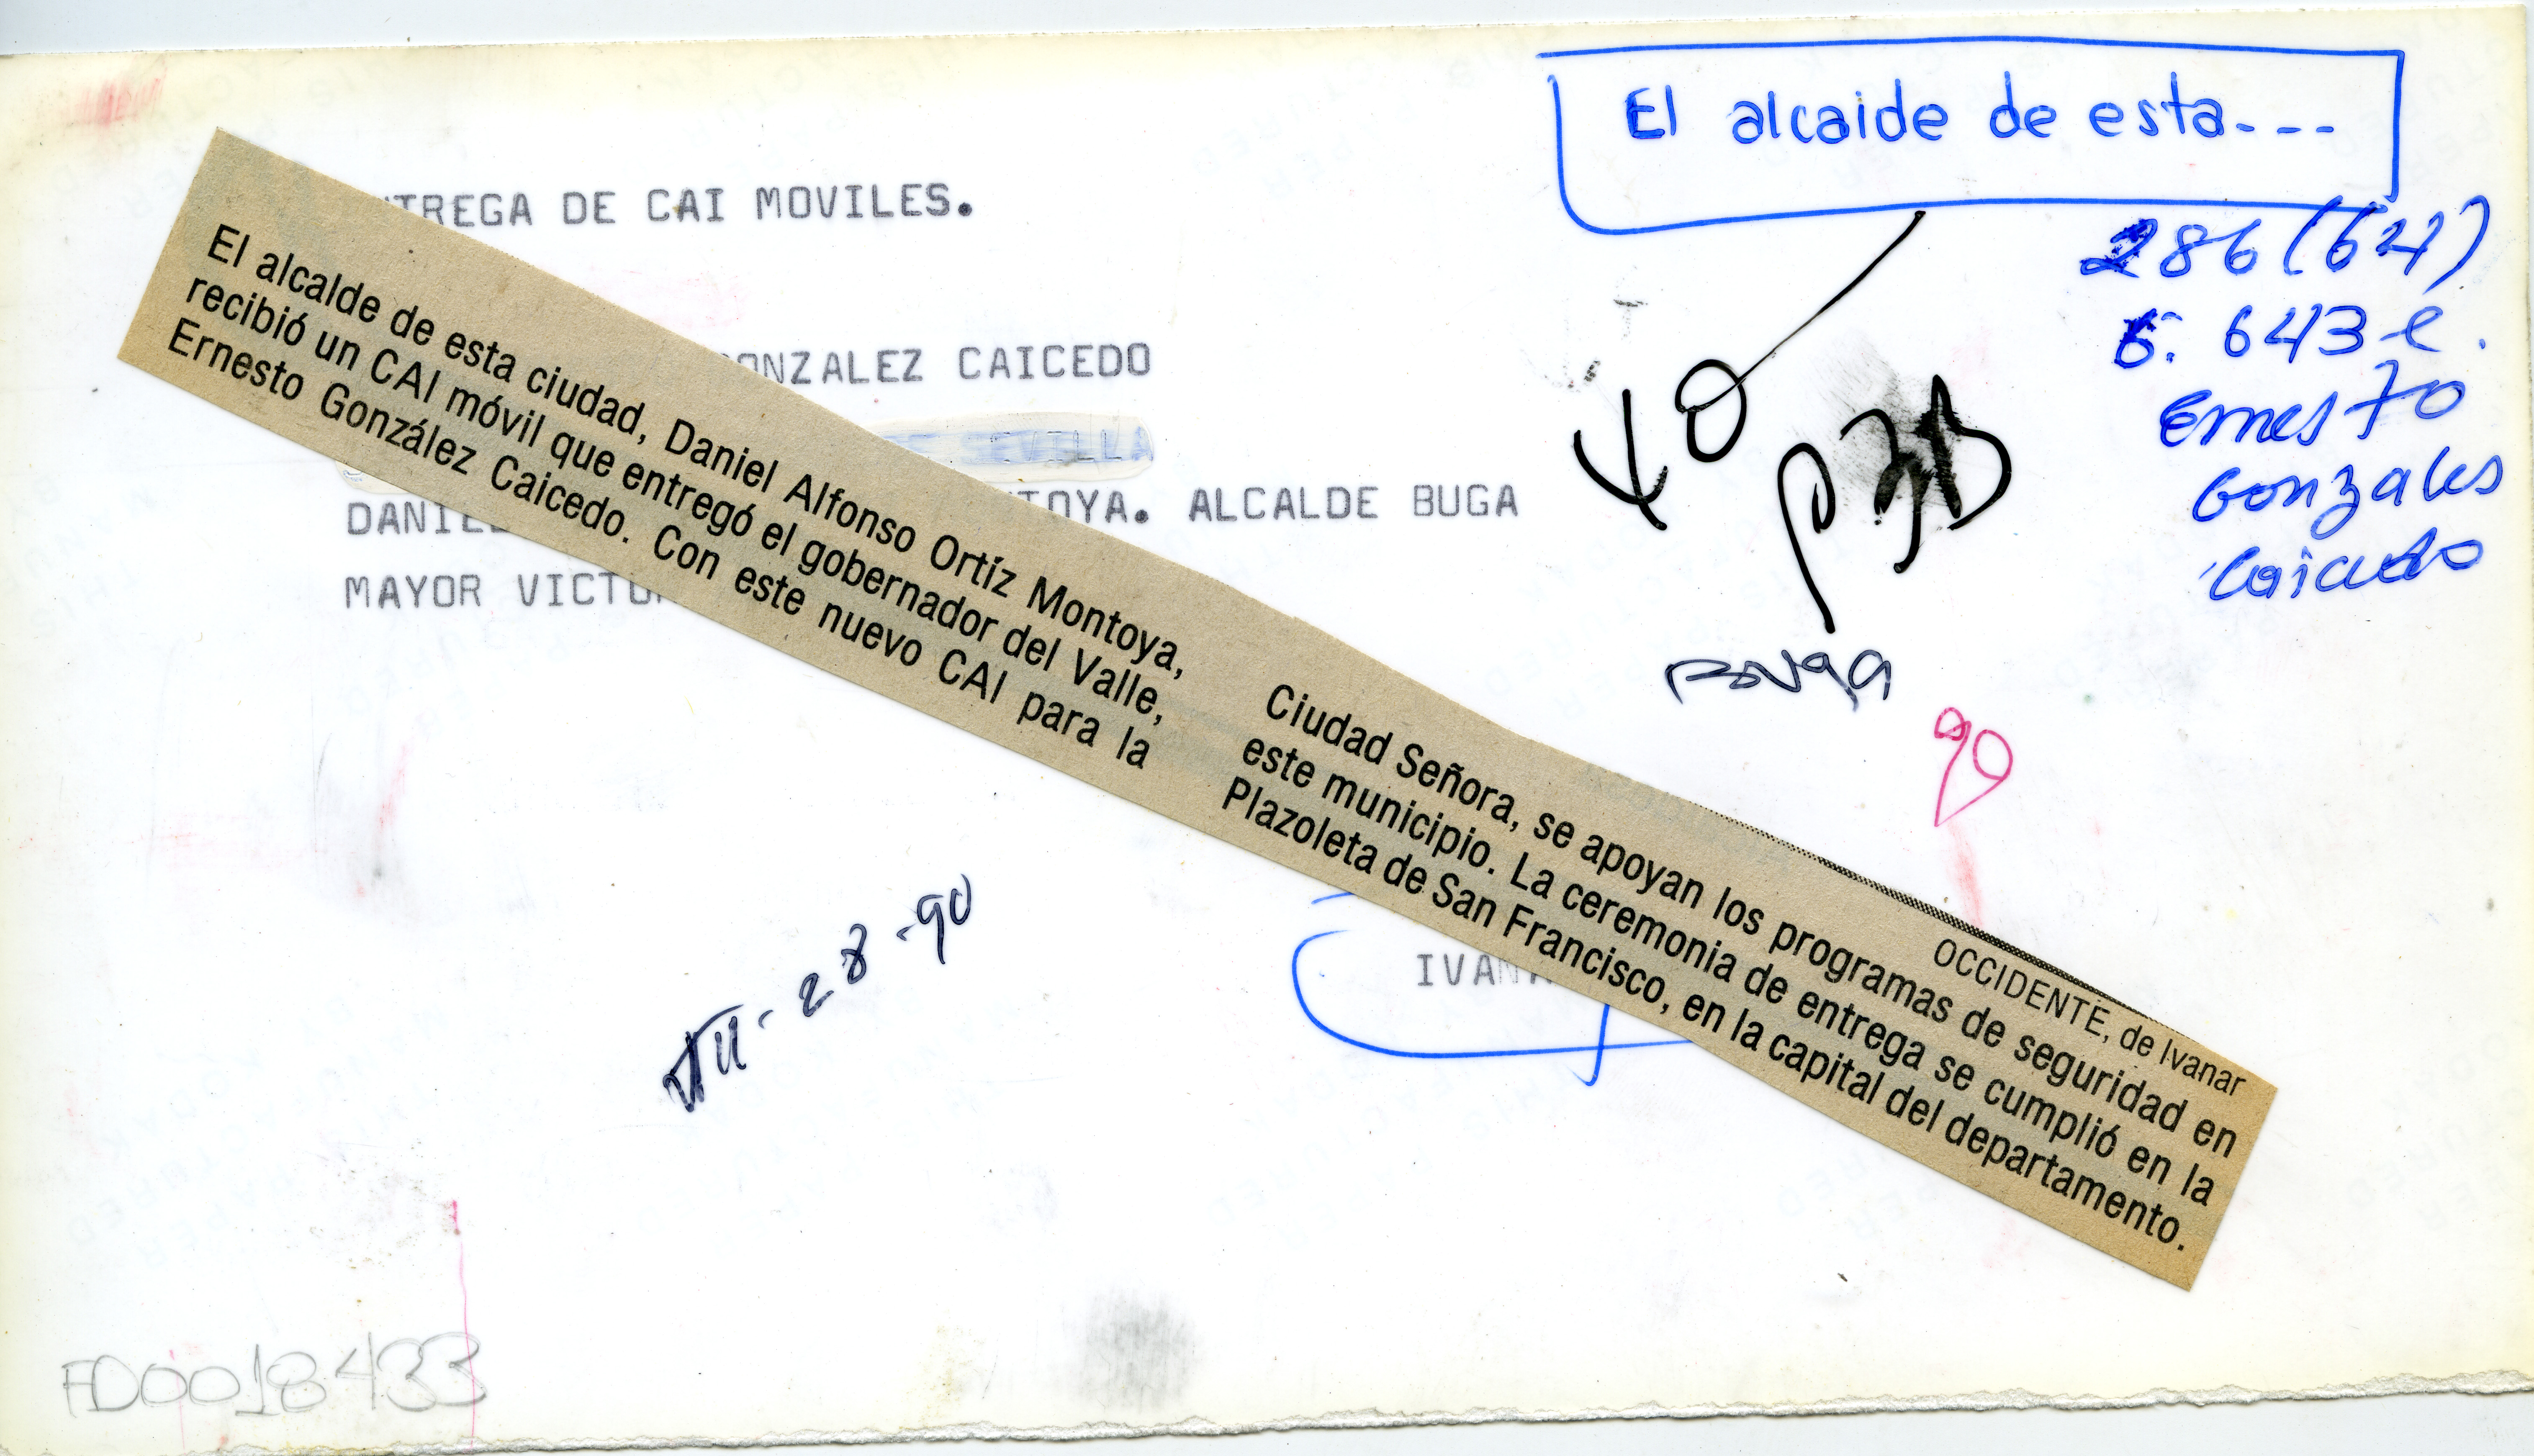 El alcaide de esta---
TREGA DE CAI MOVILES.
286 (64)
6. 643 e.
Ernesto
Gonzales
Caicedo
ONZALEZ CAICEDO
SEVILLA
DANIEL TOYA. ALCALDE BUGA
MAYOR VICTO
40
P3B
90
El alcalde de esta ciudad, Daniel Alfonso Ortíz Montoya,
recibió un CAI móvil que entregó el gobernador del Valle,
Ernesto González Caicedo. Con este nuevo CAI para la
OCCIDENTE, de Ivanar
Ciudad Señora, se apoyan los programas de seguridad en
este municipio. La ceremonia de entrega se cumplió en la
Plazoleta de San Francisco, en la capital del departamento.
VII-28-90
IVANA
FD0018433